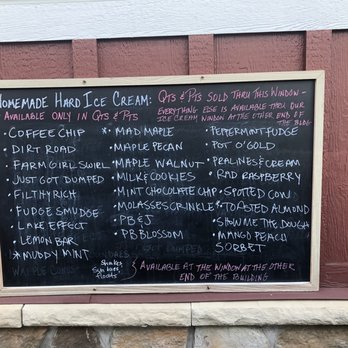 Homemade Hard Ice Cream: Qts & Pts sold thru this window -
* Available only in Qts & Pts
everything else is available thru our
ice cream window at the other end of
the bldg.
• Coffee Chip
• Dirt Road
• Farm Girl Swirl
• Just Got Dumped
• Filthy Rich
• Fudge Smudge
• Lake Effect
• Lemon Bar
* Muddy Mint
* Mad Maple
• Maple Pecan
• Maple Walnut
• Milk & Cookies
• Mint Chocolate Chip
• Molasses Crinkle
• PB & J
• PB Blossom
• Peppermint Fudge
• Pot O' Gold
• Pralines & Cream
• Rad Raspberry
• Spotted Cow
* Toasted Almond
• Show Me The Dough
• Mango Peach
Sorbet
Waffle Cones
Shakes
Sundaes
floats
Available at the window at the other
end of the building